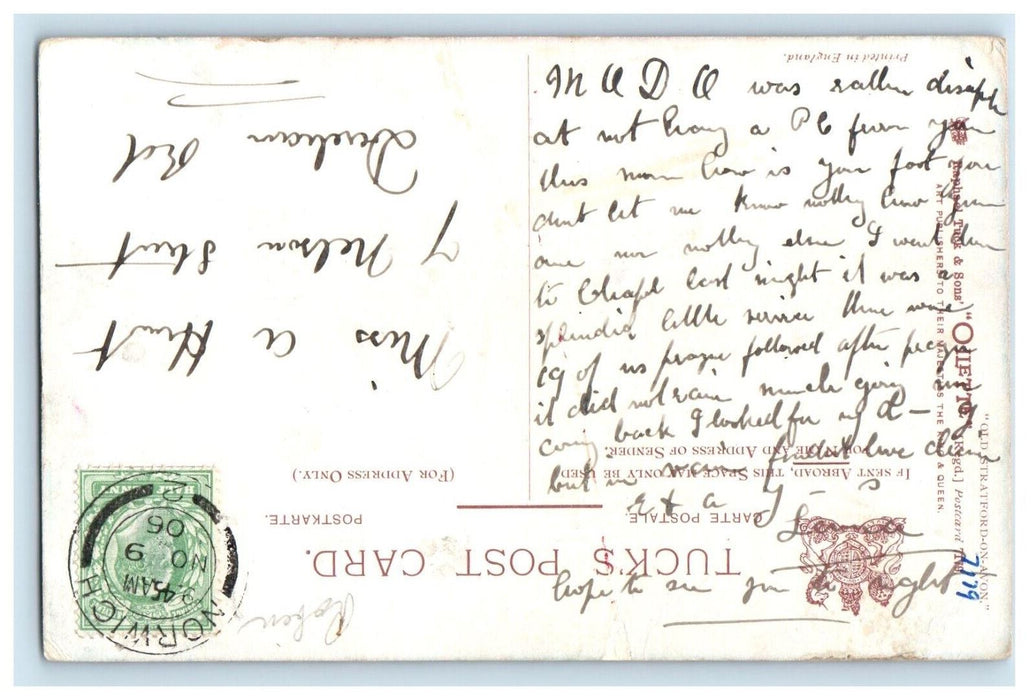 M A D A was rather disapp
at not having a PC from you
this morn how is your foot you
dont let me know nothing how you
are nor nothing else I went
to Chapel last night it was a
splendid little service there were
19 of us
it did not rain much going nor
coming back I looked for my d—
but
hope to see you to night
Miss A Hunt
7 Nelson Street
Dereham Rd
TUCK'S POST CARD.
CARTE POSTALE.
POSTKARTE.
IF SENT ABROAD, THIS SPACE MAY ONLY BE USED
FOR NAME AND ADDRESS OF SENDER.
(FOR ADDRESS ONLY.)
"OLD STRATFORD-ON-AVON."
Raphael Tuck & Sons' "OILETTE" [Regd.] Postcard
ART PUBLISHERS TO THEIR MAJESTIES THE KING & QUEEN.
Printed in England.
7179
NORWICH
945AM
NO 9
06